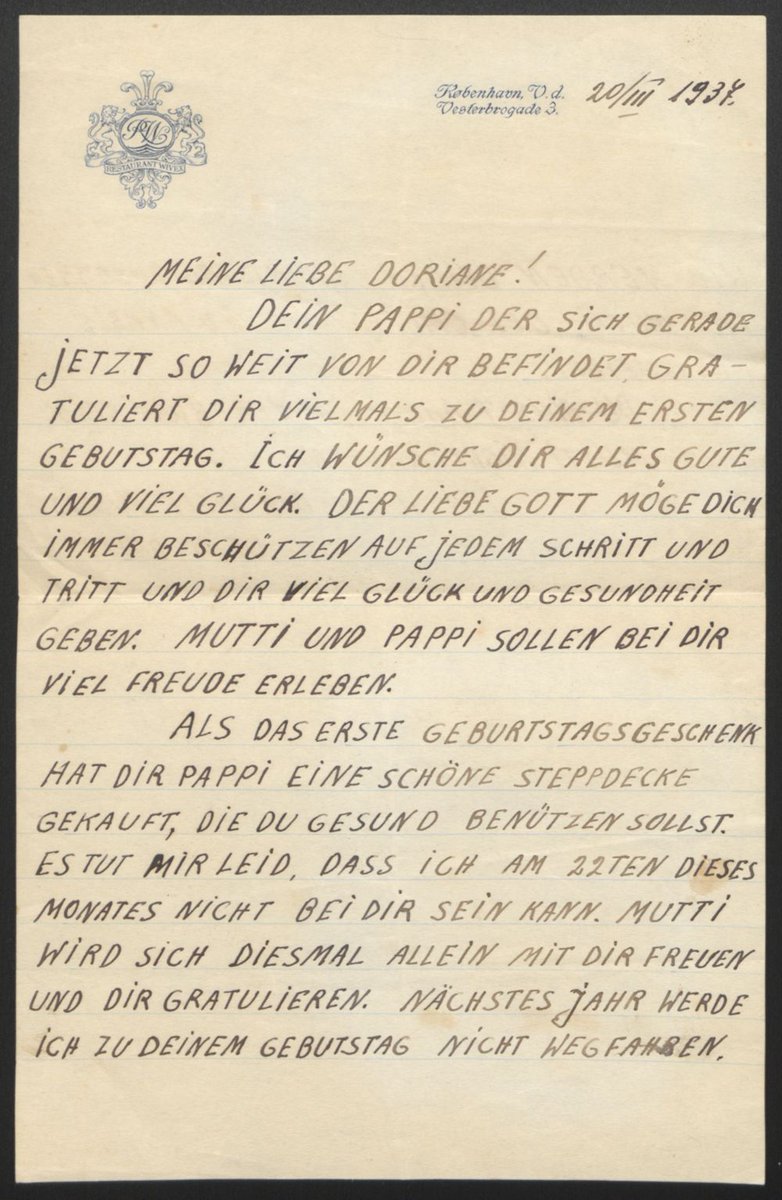 RW
RESTAURANT WIVEX
København, V. d.
Vesterbrogade 3.
20/III 1937.
MEINE LIEBE DORIANE!
DEIN PAPPI DER SICH GERADE
JETZT SO WEIT VON DIR BEFINDET, GRA-
TULIERT DIR VIELMALS ZU DEINEM ERSTEN
GEBUTSTAG. ICH WÜNSCHE DIR ALLES GUTE
UND VIEL GLÜCK. DER LIEBE GOTT MÖGE DICH
IMMER BESCHÜTZEN AUF JEDEM SCHRITT UND
TRITT UND DIR VIEL GLÜCK UND GESUNDHEIT
GEBEN. MUTTI UND PAPPI SOLLEN BEI DIR
VIEL FREUDE ERLEBEN.
ALS DAS ERSTE GEBURTSTAGSGESCHENK
HAT DIR PAPPI EINE SCHÖNE STEPPDECKE
GEKAUFT, DIE DU GESUND BENÜTZEN SOLLST.
ES TUT MIR LEID, DASS ICH AM 22TEN DIESES
MONATES NICHT BEI DIR SEIN KANN. MUTTI
WIRD SICH DIESMAL ALLEIN MIT DIR FREUEN
UND DIR GRATULIEREN. NÄCHSTES JAHR WERDE
ICH ZU DEINEM GEBUTSTAG NICHT WEGFAHREN.